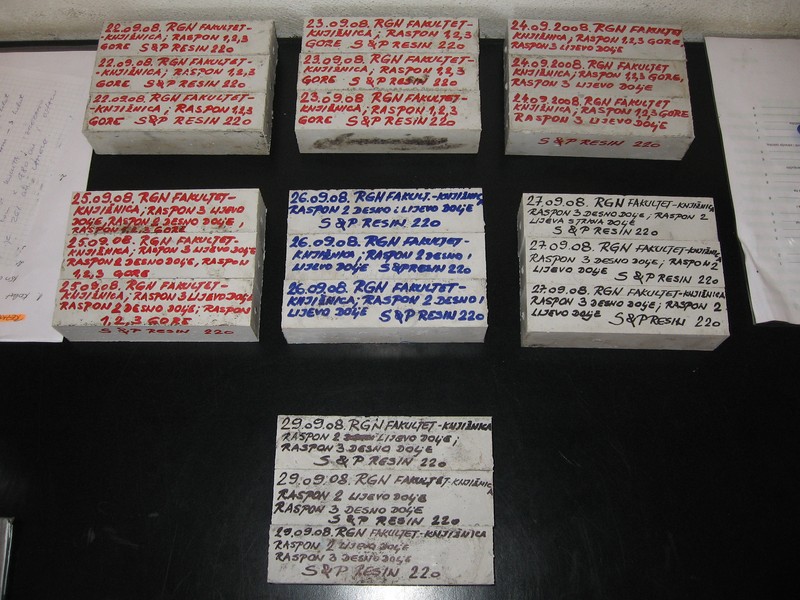 22.09.08. RGN FAKULTET-
-KNJIŽNICA; RASPON 1,2,3
GORE S&P RESIN 220
22.09.08. RGN FAKULTET-
-KNJIŽNICA; RASPON 1,2,3
GORE S&P RESIN 220
22.09.08. RGN FAKULTET-
-KNJIŽNICA; RASPON 1,2,3
GORE S&P RESIN 220
23.09.08. RGN FAKULTET-
-KNJIŽNICA; RASPON 1,2,3
GORE S&P RESIN 220
23.09.08. RGN FAKULTET-
-KNJIŽNICA; RASPON 1,2,3
GORE S&P RESIN 220
23.09.08. RGN FAKULTET-
-KNJIŽNICA; RASPON 1,2,3
GORE S&P RESIN 220
24.09.2008. RGN FAKULTET
KNJIŽNICA; RASPON 1,2,3 GORE,
RASPON 3 LIJEVO DOLJE
24.09.2008. RGN FAKULTET
KNJIŽNICA, RASPON 1,2,3 GORE,
RASPON 3 LIJEVO DOLJE
24.09.2008. RGN FAKULTET
KNJIŽNICA, RASPON 1,2,3 GORE
RASPON 3 LIJEVO DOLJE
S&P RESIN 220
25.09.08. RGN FAKULTET-
-KNJIŽNICA; RASPON 3 LIJEVO
DOLJE, RASPON 2 DESNO DOLJE;
RASPON 1,2,3 GORE
25.09.08. RGN FAKULTET-
-KNJIŽNICA; RASPON 3 LIJEVO DOLJE
RASPON 2 DESNO DOLJE, RASPON
1,2,3 GORE
25.09.08. RGN FAKULTET-
-KNJIŽNICA; RASPON 3 LIJEVO DOLJE
RASPON 2 DESNO DOLJE; RASPON
1,2,3 GORE
S&P RESIN 220
26.09.08. RGN FAKULT.-KNJIŽNICA
RASPON 2 DESNO i LIJEVO DOLJE
S&P RESIN 220
26.09.08. RGN FAKULTET-
-KNJIŽNICA; RASPON 2 DESNO i
LIJEVO DOLJE S&P RESIN 220
26.09.08. RGN FAKULTET-
-KNJIŽNICA; RASPON 2 DESNO i
LIJEVO DOLJE S&P RESIN 220
27.09.08. RGN FAKULTET-KNJIŽNICA
RASPON 3 DESNO DOLJE; RASPON 2
LIJEVA STRANA DOLJE
S&P RESIN 220
27.09.08. RGN FAKULTET-KNJIŽNICA
RASPON 3 DESNO DOLJE; RASPON 2
LIJEVO DOLJE
S&P RESIN 220
27.09.08. RGN FAKULTET-KNJIŽNICA
RASPON 3 DESNO DOLJE; RASPON 2
LIJEVO DOLJE
S&P RESIN 220
29.09.08. RGN FAKULTET-KNJIŽNICA
RASPON 2 LIJEVO DOLJE;
RASPON 3 DESNO DOLJE
S&P RESIN 220
29.09.08. RGN FAKULTET-KNJIŽNICA
RASPON 2 LIJEVO DOLJE
RASPON 3 DESNO DOLJE
S&P RESIN 220
29.09.08. RGN FAKULTET-KNJIŽNICA
RASPON 2 LIJEVO DOLJE
RASPON 3 DESNO DOLJE
S&P RESIN 220